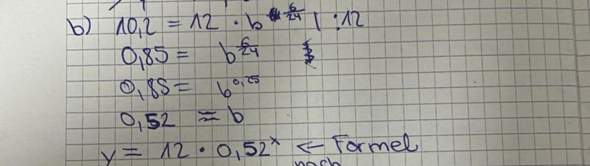 b) 10,2 = 12 · b^6/24 | :12
0,85 = b^6/24
0,85 = b^0,25
0,52 = b
y = 12 · 0,52^x ← Formel
nach